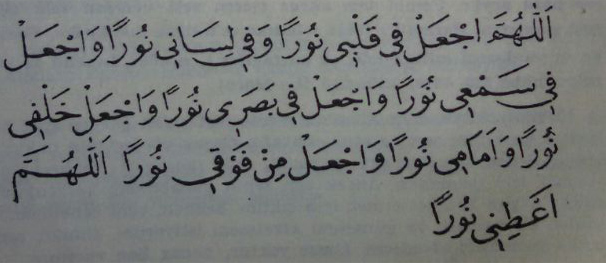 اَللّٰهُمَّ اجْعَلْ فِي قَلْبِى نُورًا وَفِي لِسَانِى نُورًا وَاجْعَلْ
فِي سَمْعِى نُورًا وَاجْعَلْ فِي بَصَرِى نُورًا وَاجْعَلْ خَلْفِى
نُورًا وَاَمَامِى نُورًا وَاجْعَلْ مِنْ فَوْقِى نُورًا اَللّٰهُمَّ
اَعْطِنِى نُورًا